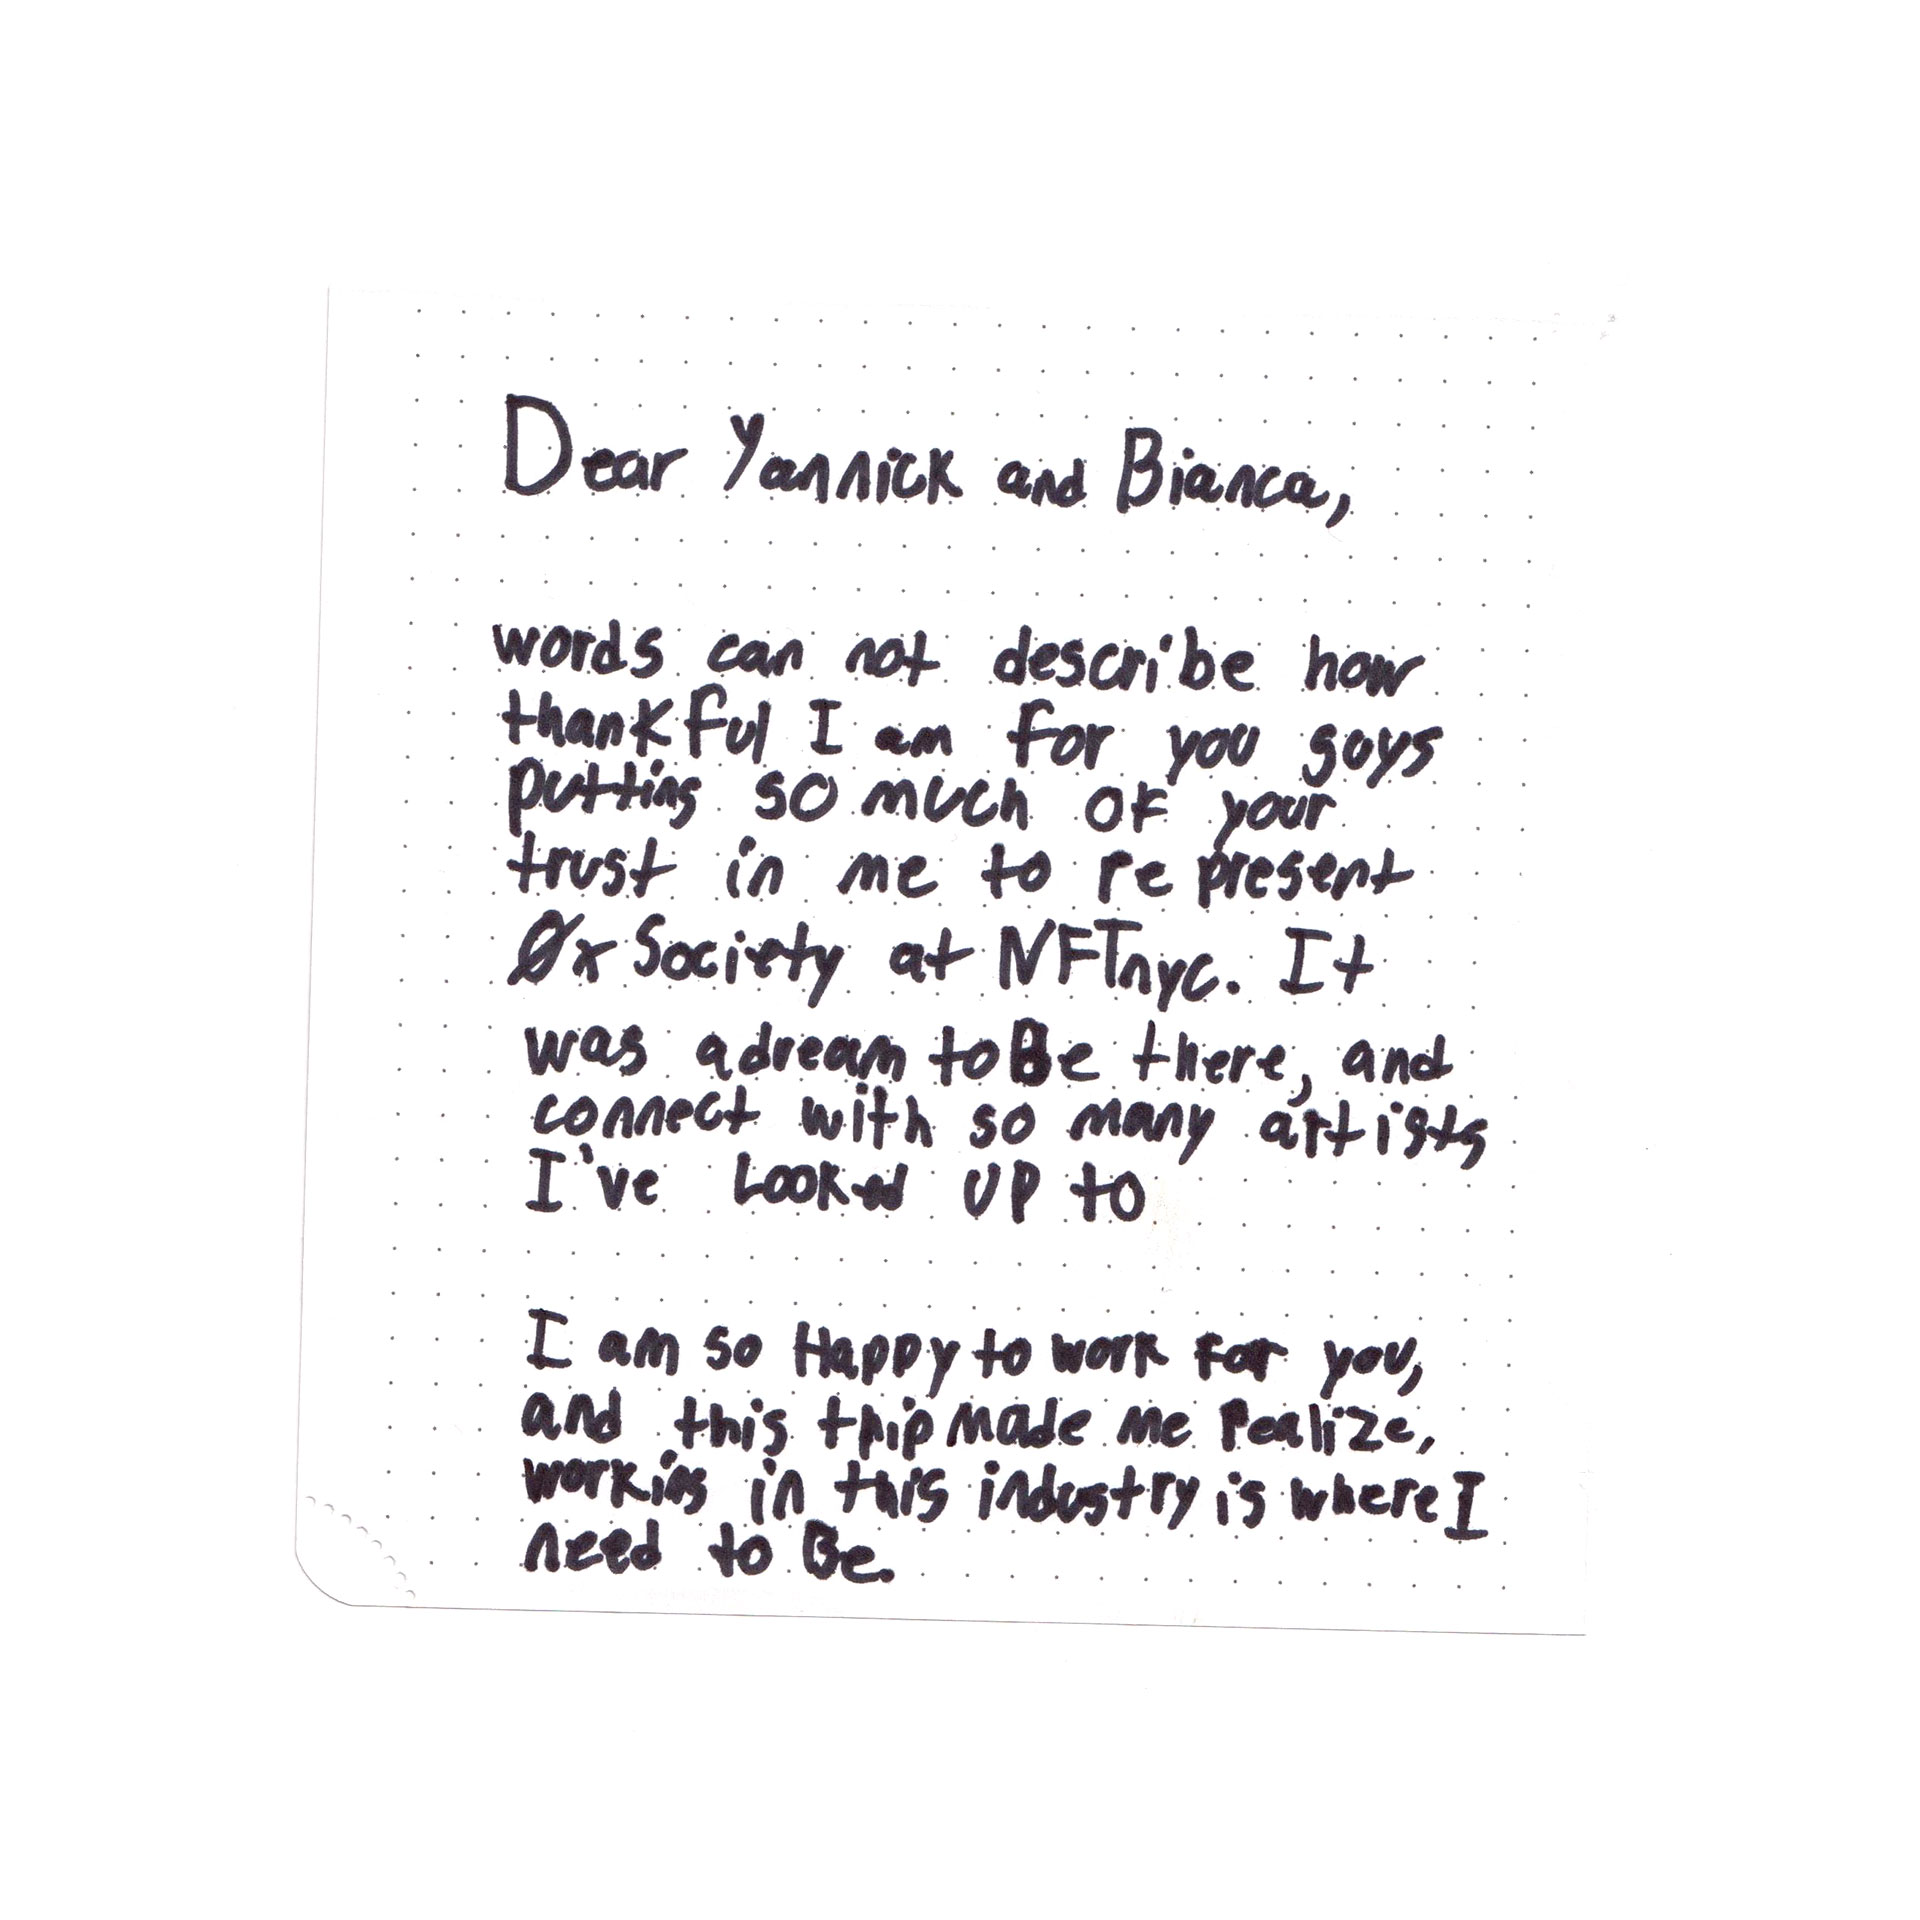 Dear Yannick and Bianca,
words can not describe how
thankful I am for you guys
putting so much of your
trust in me to represent
0xSociety at NFTnyc. It
was a dream to Be there, and
connect with so many artists
I've Looked UP to
I am so Happy to work for you,
and this trip made me Realize,
working in this industry is where I
need to Be.